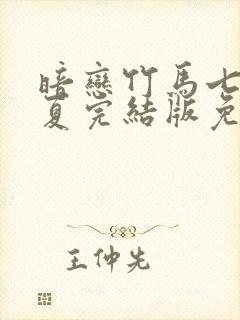 暗戀竹馬七
夏完結版免
王仲先